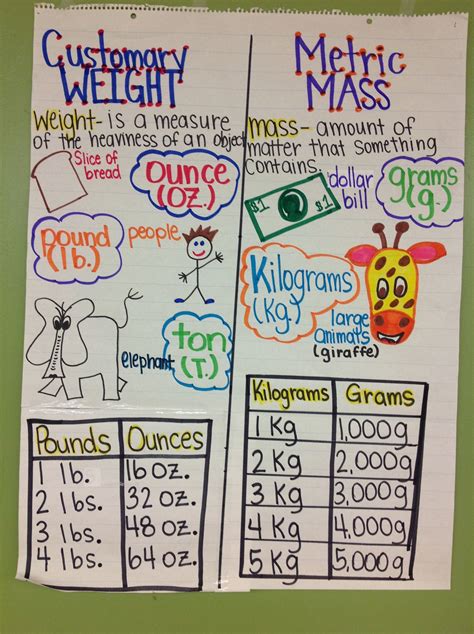 Customary
WEIGHT
Weight- is a measure
of the heaviness of an object
Slice of
bread
ounce
(oz.)
pound
(lb.)
people
elephant
ton
(T.)
Pounds Ounces
1 lb. 16 oz.
2 lbs. 32 oz.
3 lbs. 48 oz.
4 lbs. 64 oz.
Metric
MASS
mass- amount of
matter that something
contains.
$1 $1
dollar
bill
grams
(g.)
Kilograms
(Kg.)
large
animals
(giraffe)
Kilograms Grams
1 Kg 1,000g
2 Kg 2,000g
3 Kg 3,000g
4 Kg 4,000g
5 Kg 5,000g